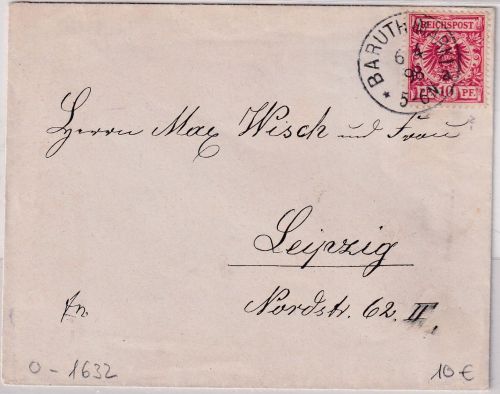 REICHSPOST
10 PF.
BARUTH (MARK)
6 4
98
5-6N
Herrn Max Wisch und Frau
Leipzig
Nordstr. 62. II.
fr.
0-1632
10€